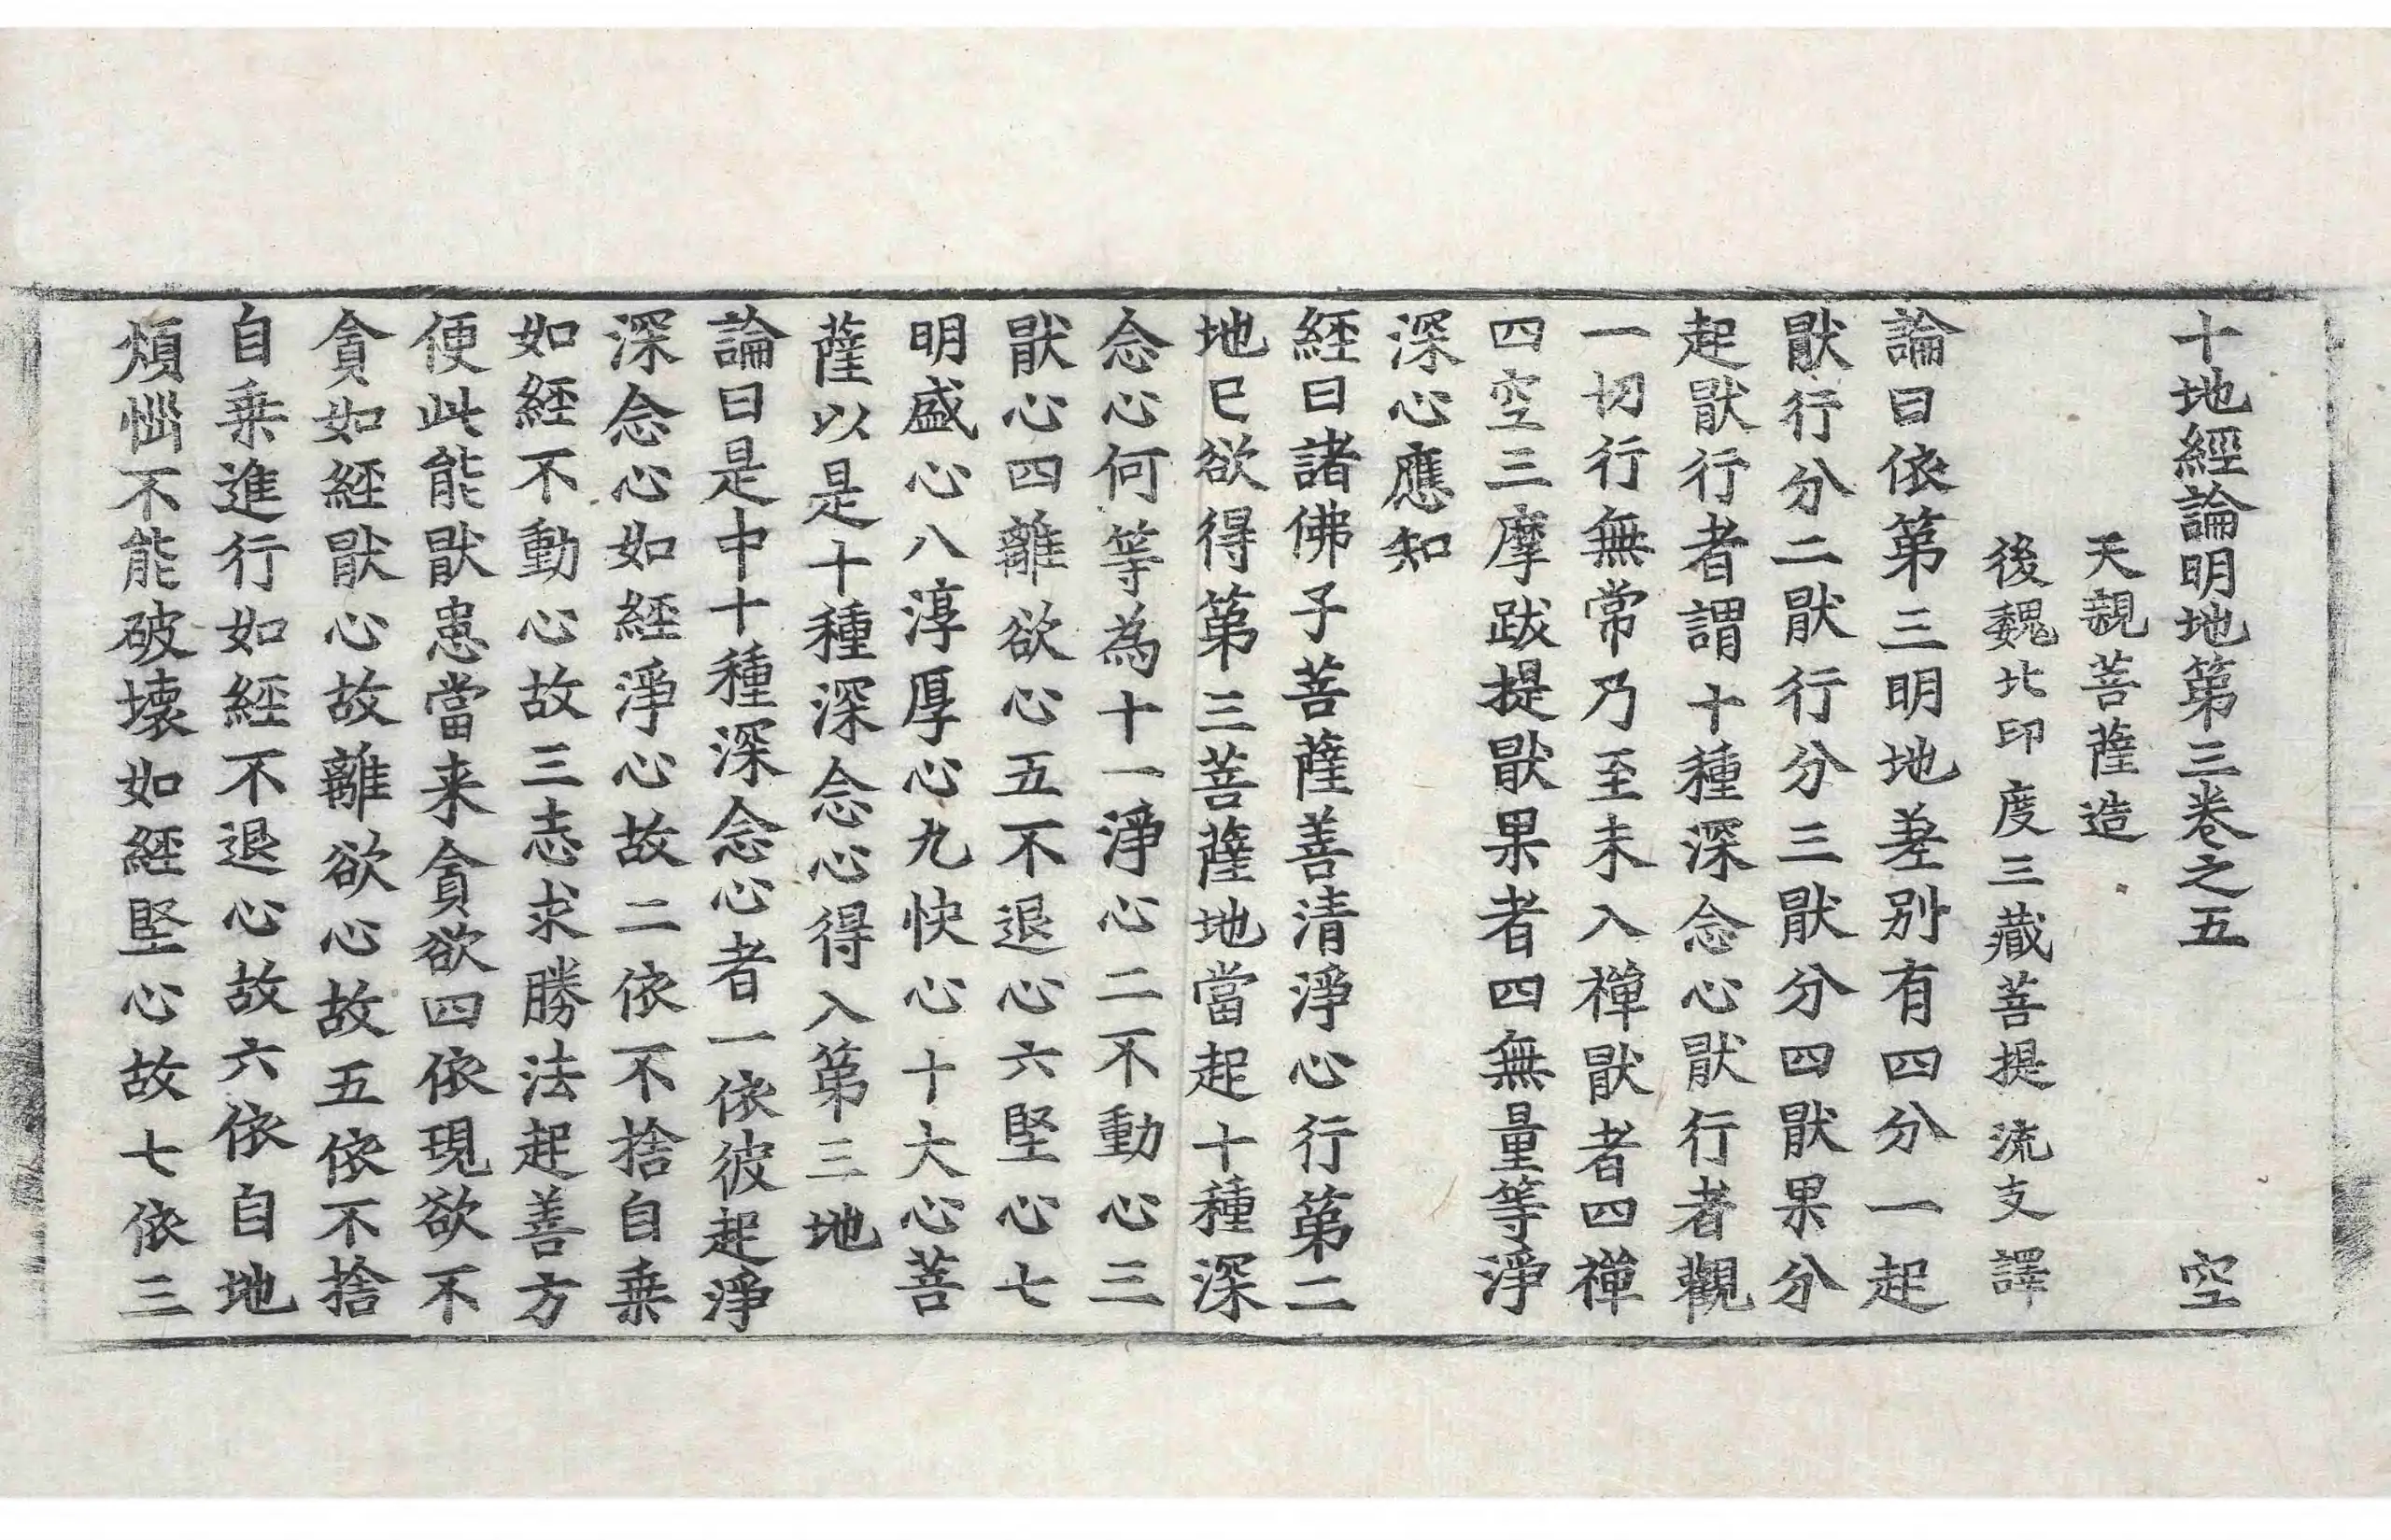 十地經論明地第三卷之五 空
天親菩薩造
後魏北印度三藏菩提流支譯
論曰依第三明地差別有四分一起
猒行分二猒行分三猒分四猒果分
起猒行者謂十種深念心猒行者觀
一切行無常乃至未入禪猒者四禪
四空三摩跋提猒果者四無量等淨
深心應知
經曰諸佛子菩薩善清淨心行第二
地已欲得第三菩薩地當起十種深
念心何等為十一淨心二不動心三
猒心四離欲心五不退心六堅心七
明盛心八淳厚心九快心十大心菩
薩以是十種深念心得入第三地
論曰是中十種深念心者一依彼起淨
深念心如經淨心故二依不捨自乗
如經不動心故三志求勝法起善方
便此能猒患當来貪欲四依現欲不
貪如經猒心故離欲心故五依不捨
自乗進行如經不退心故六依自地
煩惱不能破壞如經堅心故七依三